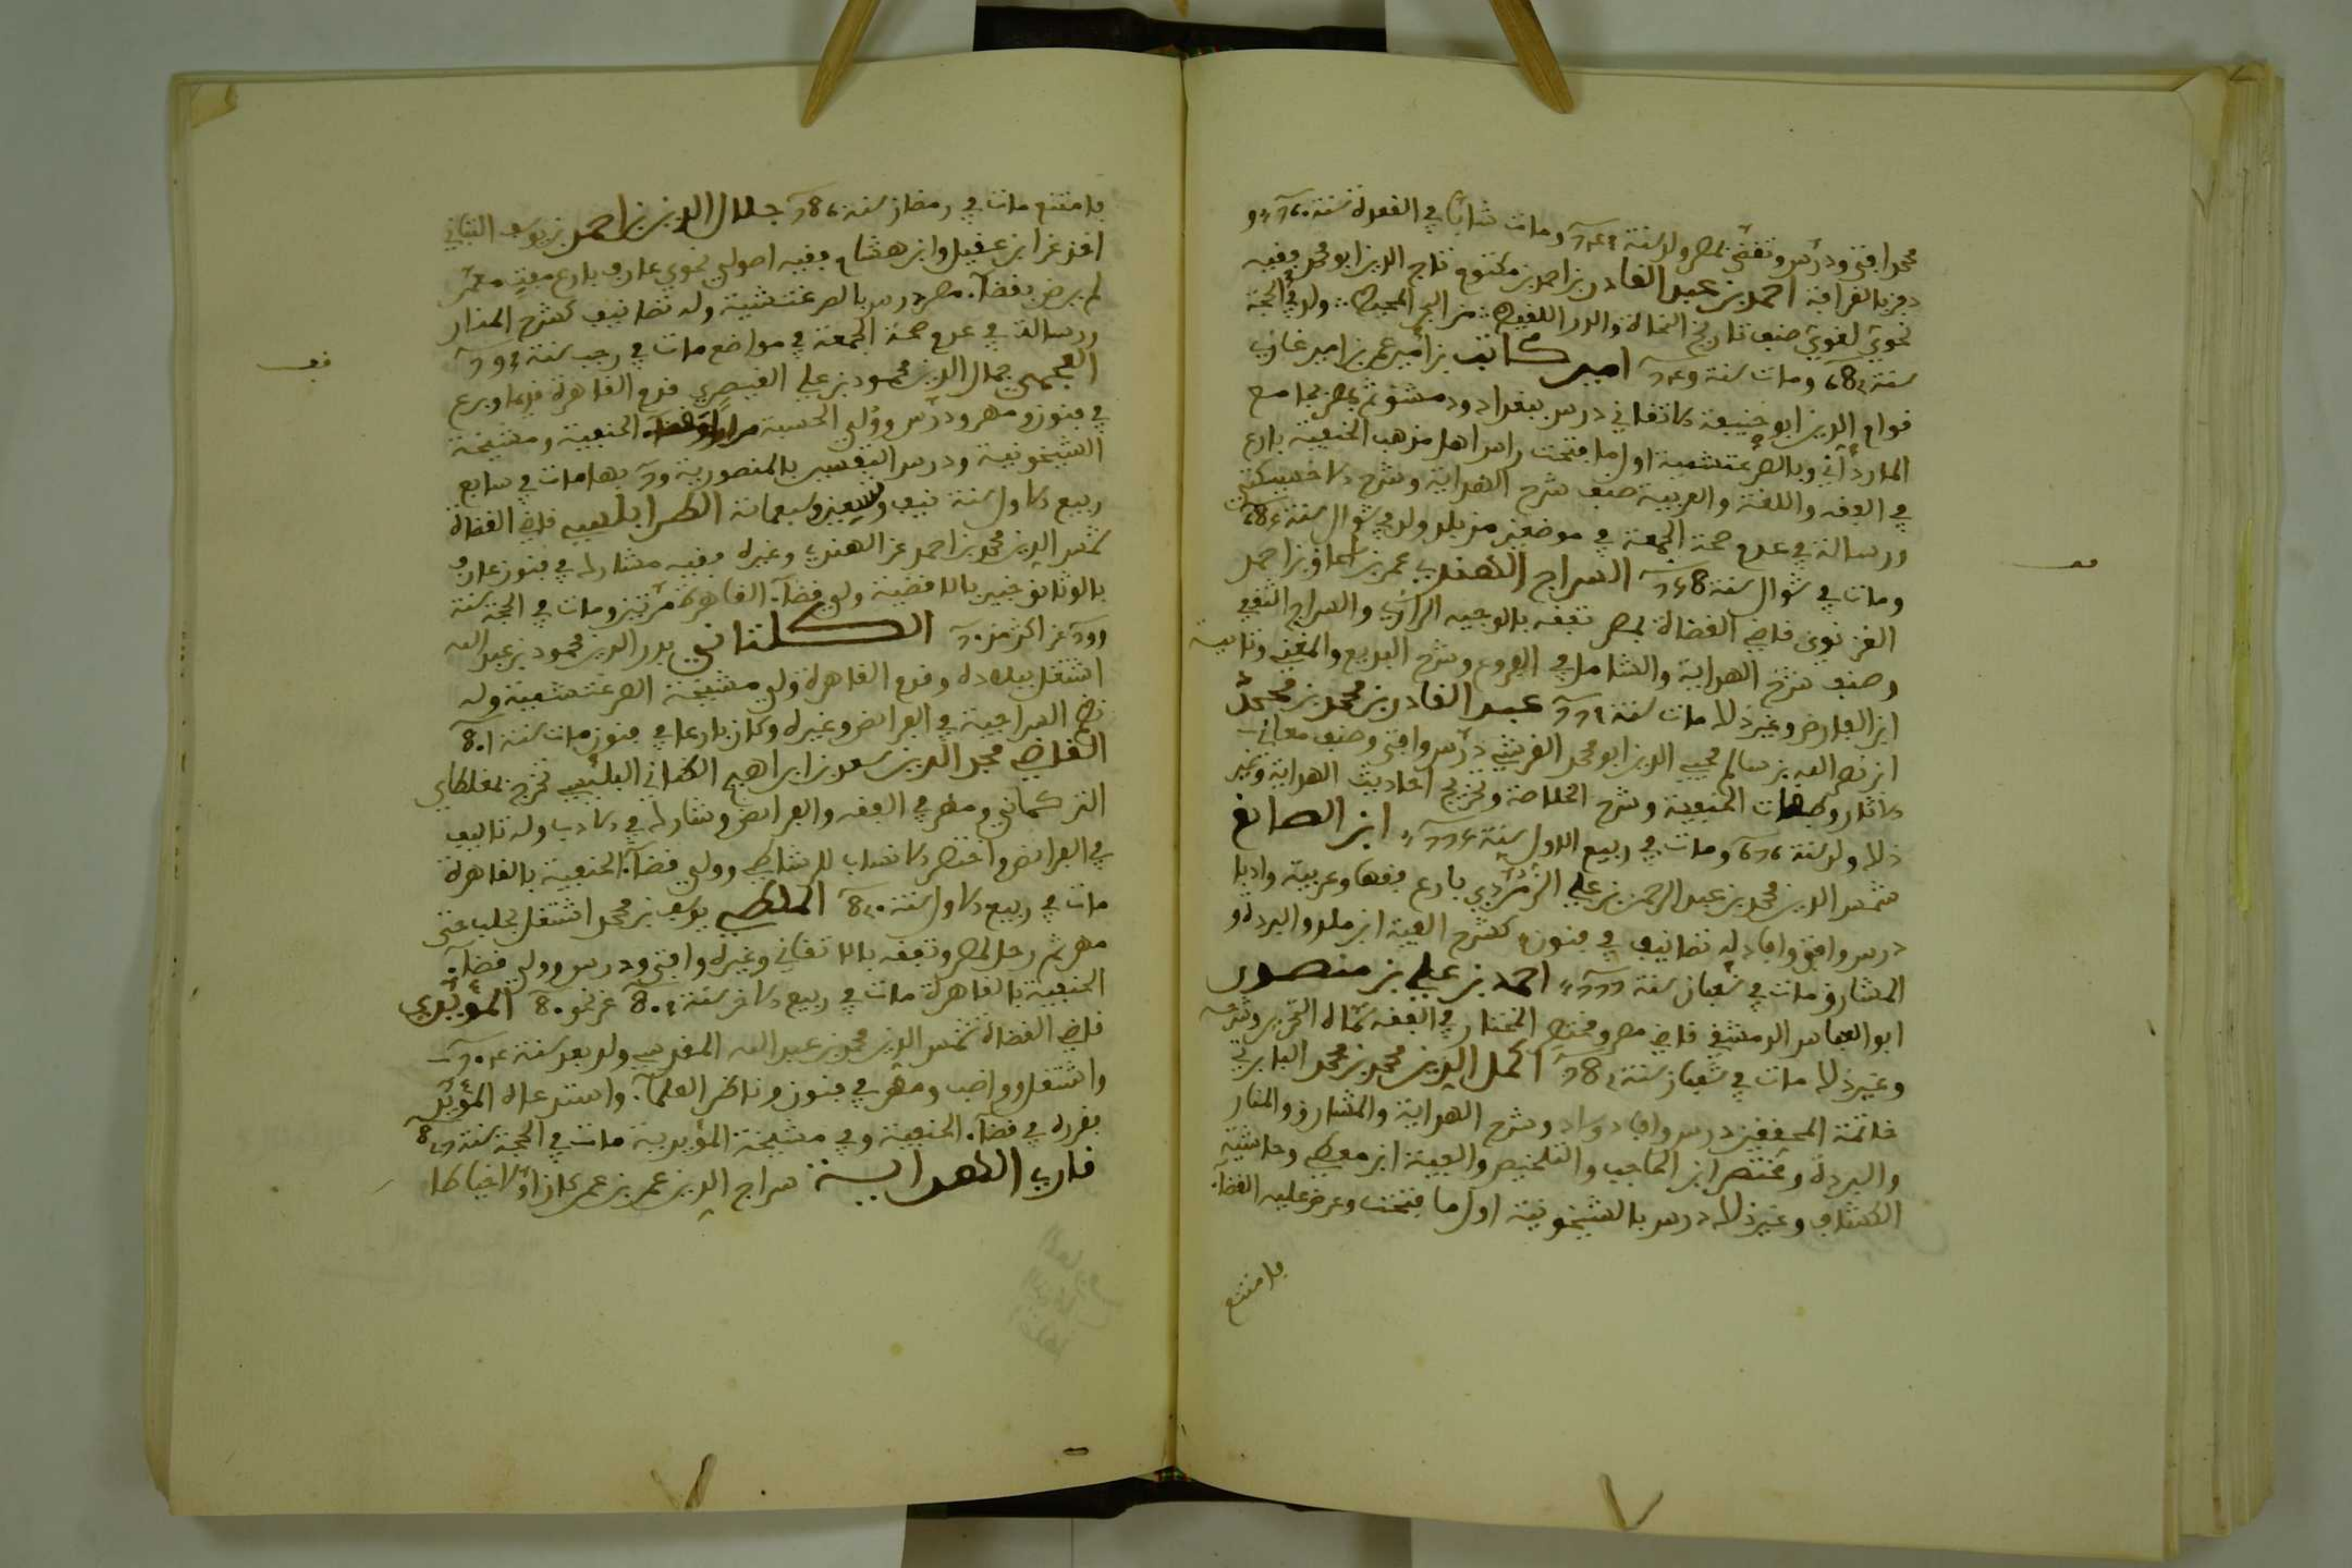 محمد افتى ودرس وتفقه بمصر ولد سنة ومات شابا في القعدة سنة
دفن بالقرافة احمد بن عبد القادر بن احمد بن مكتوم تاج الدين ابو محمد فقيه
نحوي لغوي صنف تاريخ النحاة والدر اللقيط من البحر المحيط ولد في الحجة
سنة ومات سنة امير كاتب بن امير عمر بن امير غازي
قوام الدين ابو حنيفة الاتقاني درس ببغداد ودمشق ثم بمصر بجامع
المارداني وبالصرغتمشية اول ما فتحت راس اهل مذهب الحنفية بارع
في الفقه واللغة والعربية صنف شرح الهداية وشرح الاخسيكتي
ورسالة في عدم صحة الجمعة في موضعين من بلد ولد في شوال سنة
ومات في شوال سنة السراج الهندي عمر بن اسحاق بن احمد
الغزنوي قاضي القضاة بمصر تفقه بالوجيه الرازي والسراج الثقفي
وصنف شرح الهداية والشامل في الفروع وشرح البديع والمغني وتائية
ابن الفارض وغير ذلك مات سنة عبد القادر بن محمد بن محمد
ابن نصر الله بن سالم محيي الدين ابو محمد القرشي درس وافتى وصنف معاني
الاثار وطبقات الحنفية وشرح الخلاصة وتخريج احاديث الهداية وغير
ذلك ولد سنة ومات في ربيع الاول سنة ابن الصائغ
شمس الدين محمد بن عبد الرحمن بن علي الزمردي بارع فقها وعربية وادبا
درس وافتى وافاد له تصانيف في فنون كشرح الفية ابن مالك والبردة و
المشارق مات في شعبان سنة احمد بن علي بن منصور
ابو العباس الدمشقي قاضي مصر ومختصر المختار في الفقه سماه التحرير وشرحه
وغير ذلك مات في شعبان سنة اكمل الدين محمد بن محمد البابرتي
خاتمة المحققين درس وافاد وساد وشرح الهداية والمشارق والمنار
والبزدوة ومختصر ابن الحاجب والتلخيص والفية ابن معطي وحاشية
الكشاف وغير ذلك درس بالشيخونية اول ما فتحت وعرض عليه القضاء
فامتنع
فامتنع مات في رمضان سنة جلال الدين بن احمد بن يوسف التباني
اخذ عن ابن عقيل وابن هشام فقيه اصولي نحوي عارف بارع مفتي معمر
لم يرض بقضاء مصر درس بالصرغتمشية وله تصانيف كشرح المنار
ورسالة في عدم صحة الجمعة في مواضع مات في رجب سنة
العجمي جمال الدين محمود بن علي القيصري قدم القاهرة قديما وبرع
في فنون ومهر ودرس وولي الحسبة الحنفية ومشيخة
الشيخونية ودرس التفسير بالمنصورية بها مات في سابع
ربيع الاول سنة نيف وتسعين وسبعمائة الطرابلسي قاضي القضاة
شمس الدين محمد بن احمد عن الهندي وغيره فقيه مشارك في فنون عارف
بالوثائق خبير بالاقضية ولي قضاء القاهرة مرتين ومات في الحجة سنة
عن اكثر من الكلتاني بدر الدين محمود بن عبد الله
اشتغل ببلاده وقدم القاهرة ولي مشيخة الصرغتمشية وله
نظم السراجية في الفرائض وغيره وكان بارعا في فنون مات سنة
القاضي مجد الدين سعد بن ابراهيم الكناني البلبيسي تخرج بمغلطاي
التركماني ومهر في الفقه والفرائض وشارك في الادب وله تاليف
في الفرائض واختصر الانساب للرشاطي وولي قضاء الحنفية بالقاهرة
مات في ربيع الاول سنة الملطي يوسف بن محمد اشتغل بحلب حتى
مهر ثم رحل لمصر وتفقه بالاتقاني وغيره وافتى ودرس وولي قضاء
الحنفية بالقاهرة مات في ربيع الاخر سنة عن نحو المؤيدي
قاضي القضاة شمس الدين محمد بن عبد الله المقدسي ولد بعد سنة
واشتغل وواضب ومهر في فنون وناظر العلماء واستدعاه المؤيد
بقرره في قضاء الحنفية وفي مشيخة المؤيدية مات في الحجة سنة
قاري الهداية سراج الدين عمر بن عمر كان اولا خياطا